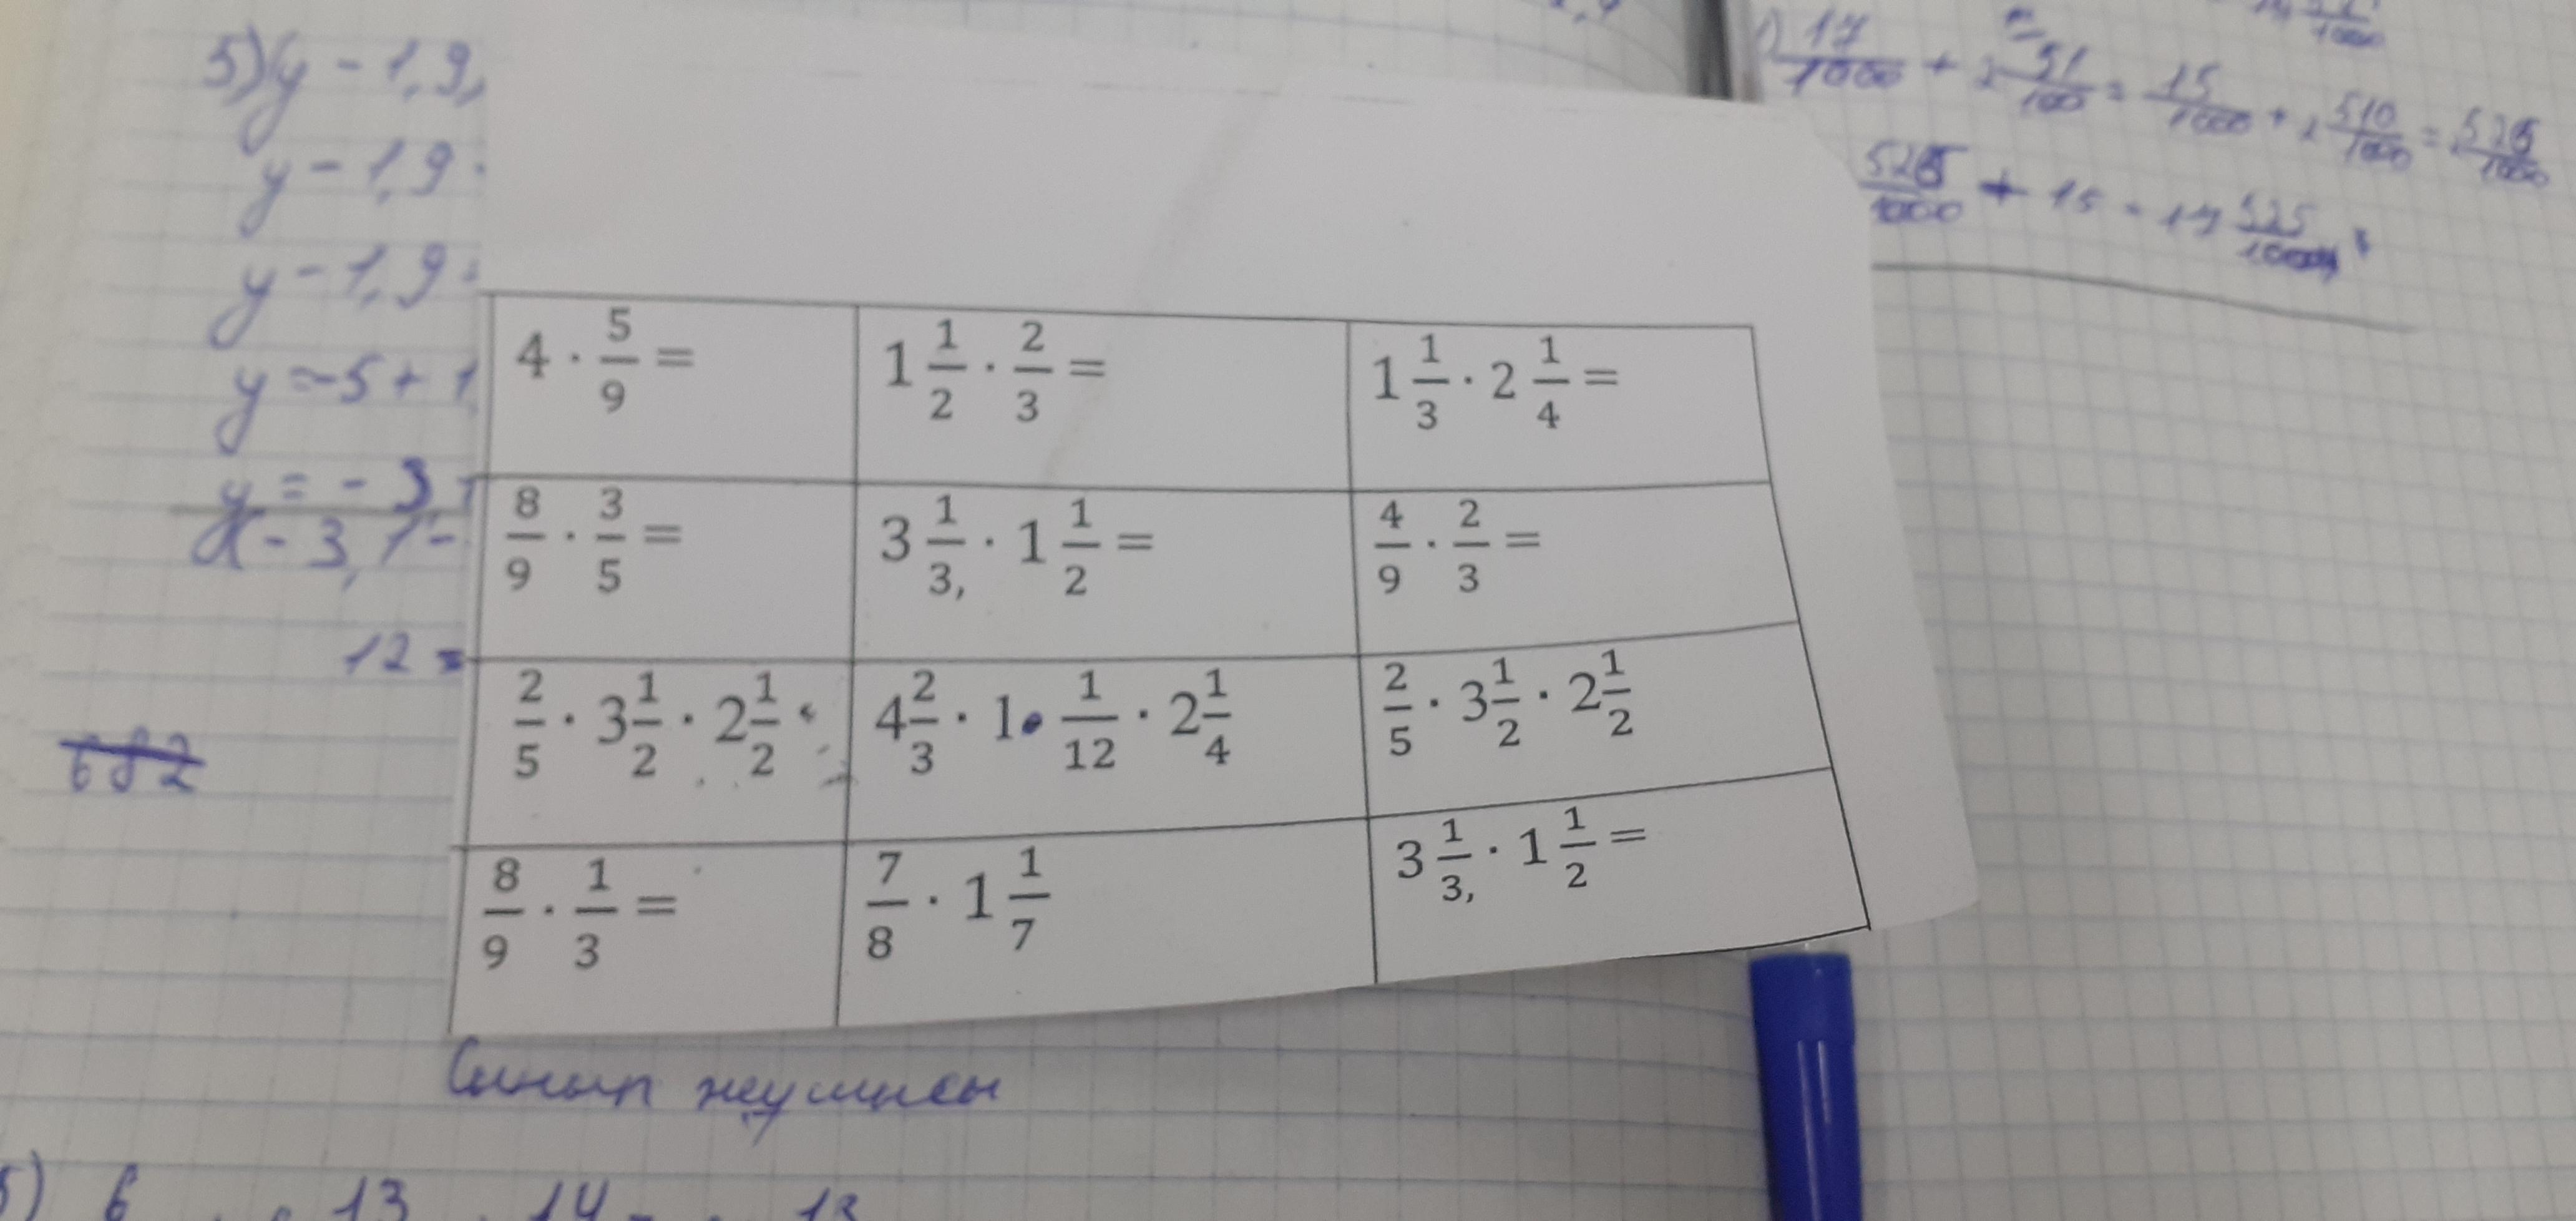 5) y - 1,9
y - 1,9
y - 1,9
y = -5 + 1
y = - 3,
x - 3,1 -
12 =
682
4 · 5/9 =
1 1/2 · 2/3 =
1 1/3 · 2 1/4 =
8/9 · 3/5 =
3 1/3, · 1 1/2 =
4/9 · 2/3 =
2/5 · 3 1/2 · 2 1/2
4 2/3 · 1 · 1/12 · 2 1/4
2/5 · 3 1/2 · 2 1/2
8/9 · 1/3 =
7/8 · 1 1/7
3 1/3, · 1 1/2 =
Сынып жұмысы
17/1000 + 2 51/100 = 15/1000 + 2 510/1000 = 2 525/1000
525/1000 + 15 = 17 525/1000
6 13 14 13